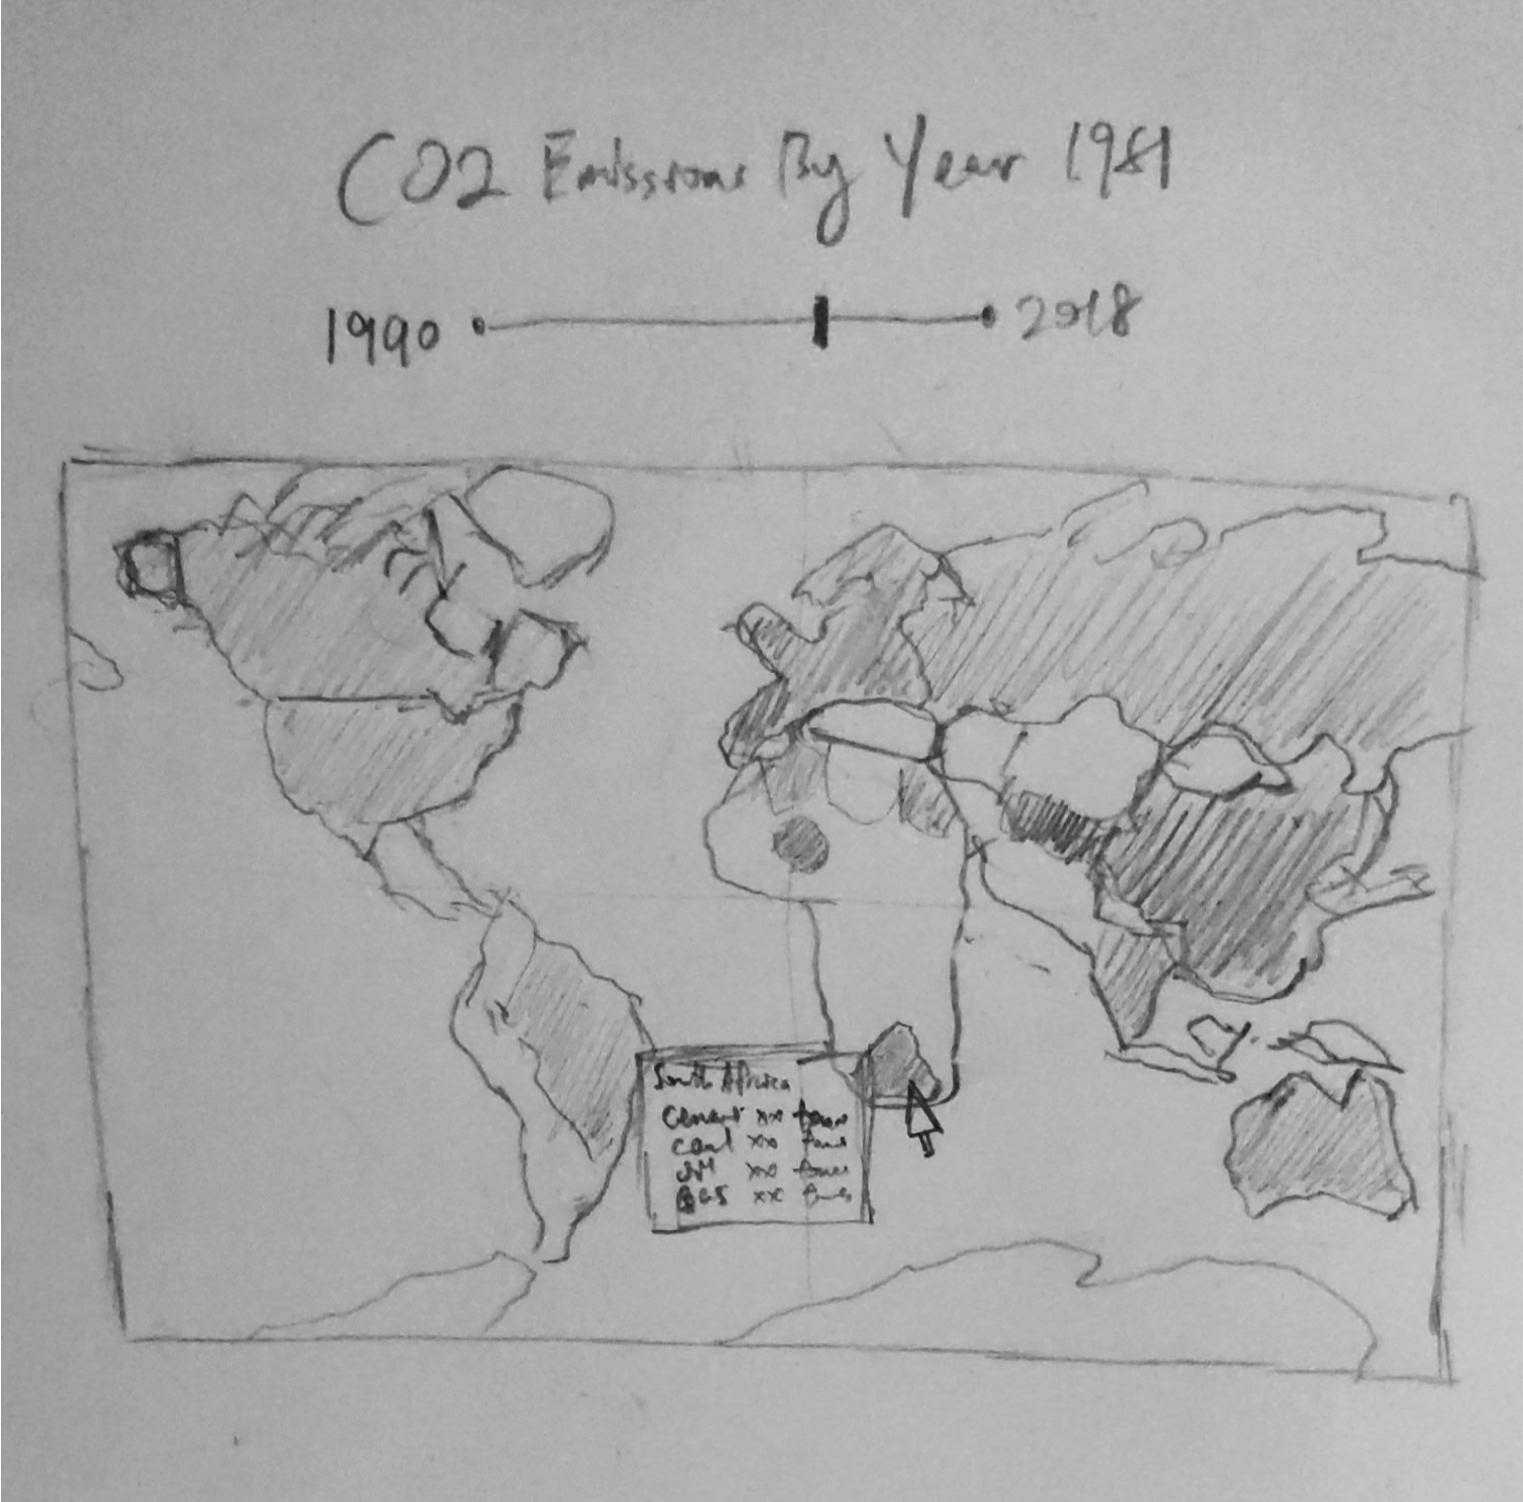 CO2 Emissions By Year 1981
1990 2018
South Africa
Cement xx tones
coal xx tones
oil xx tones
gas xx tones